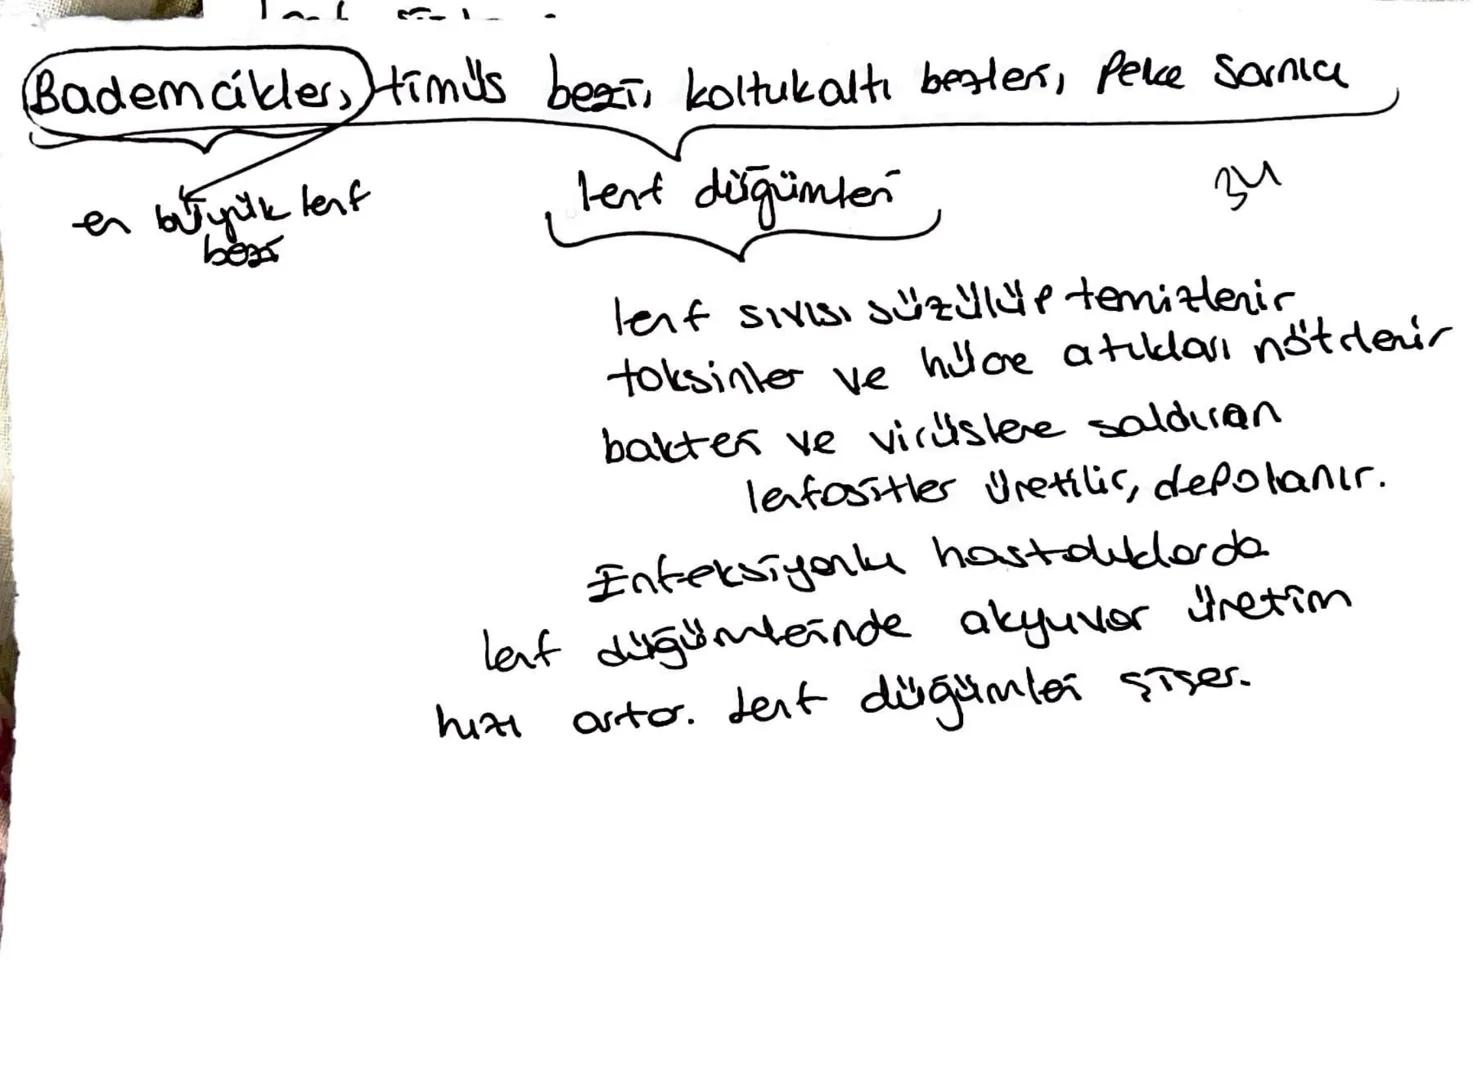 Bademcikler, timüs bezi, koltukaltı bezleri, Peke Sarnıcı
en büyük lenf
bezi
lenf düğümleri
34
lenf sıvısı süzülüp temizlenir
toksinler ve hücre atıkları nötrlenir
bakteri ve virüslere saldıran
lenfositler üretilir, depolanır.
Enfeksiyonlu hastalıklarda
lenf düğümlerinde akyuvar üretim
hızı artar. Lenf düğümleri şişer.